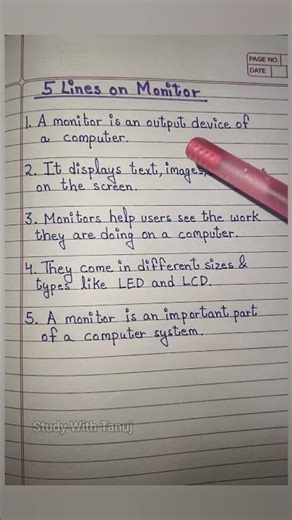 PAGE NO.
DATE
5 Lines on Monitor
1. A monitor is an output device of
a computer.
2. It displays text, images,
on the screen.
3. Monitors help users see the work
they are doing on a computer.
4. They come in different sizes &
types like LED and LCD.
5. A monitor is an important part
of a computer system.
Study With Tanuj